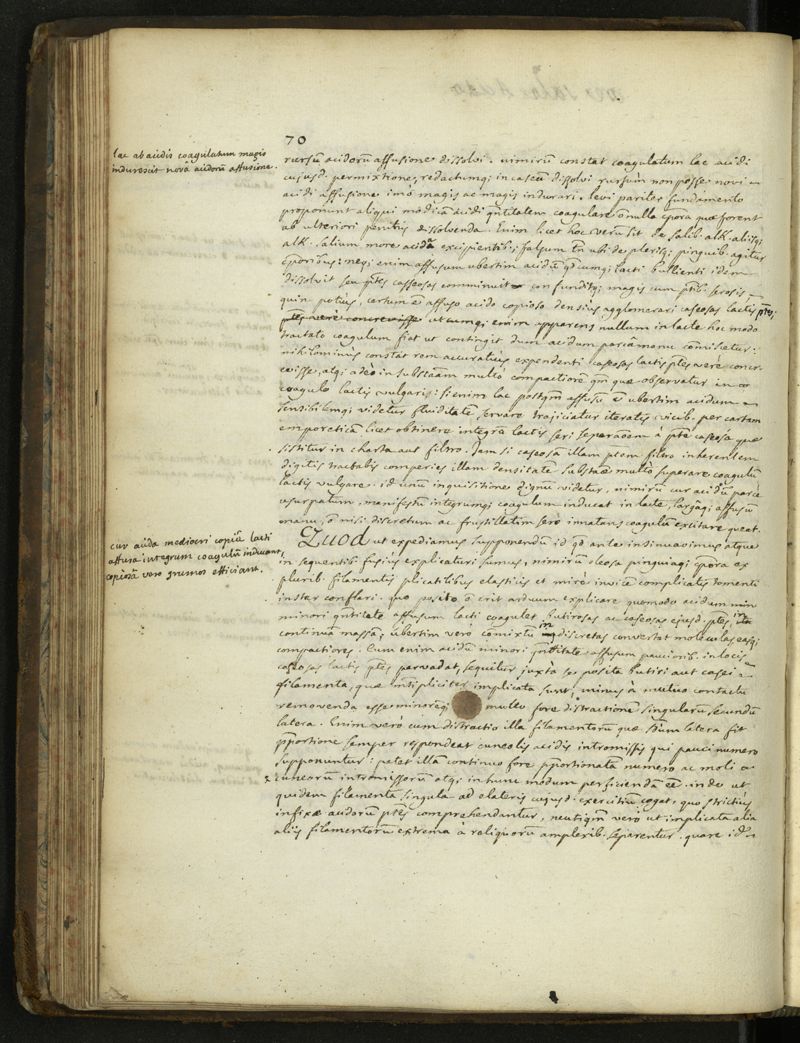 70
lac ab acidis coagulatum magis
indurescit novâ acidorũ affusione.
rursũ acidorũ affusione dissolvi. nimirũ constat coagulatum lac acidi
cujusd. permixtione, redactumq; in caseũ dissolvi rursùm non posse novi
acidi affusione imò magis ac magis indurari. levi pariter fundamento
proponunt aliqui modicâ acidi qñtitatem coagulare nulla cpora quæ forent
ab ulteriori penitùs dissolvenda. Enim licet hoc verũ sit de salib. alk. aliisq;
alk. salium more acida excipientib; falsum tñ ubi de plerisq; pinguib. agitur
cporibus: neq; enim affusum ubertim acidũ qdcumq; lacti bullienti idem
dissolvit seu ptes caseosas comminuit confunditq; magis cum ptib. serosis
quin potius, certum ẽ affuso acido copioso densiùs agglomerari caseosas lactis ptes,
ptes verè concrevisse utcumq; enim apparens nullum in lacte hoc modo
tractato coagulum fiat ut contingit dum acidum parcâ manu cõmiscetur:
nihilominùs constat rem accuratiùs expendenti caseosas lactis ptes verè concre-
visse, atq; adeò in substãam multò compactiorẽ qm quæ observatur in
coagulo lactis vulgaris: si enim lac postqm affusũ ẽ ubertim acidum
sensibilemq; videtur fluiditatẽ servare trajiciatur iteratis vicib. per cartam
emporeticã licet obtinere integrã lactis seri separaõem à pte caseosa quæ
sistitur in charta aut filtro. Jam si caseosã illam ptem filtro inhærentem
digitis tractabis comperies illam densitate substãæ multò superare coagulũ
lactis vulgare. id unũ inquisitione dignũ videtur, nimirũ cur acidũ parcè
usurpatum, manifestũ integrumq; coagulum inducat in lacte, largâq; affusũ
manu, nisi discretum ac frustillatim sero innatans coagulũ excitare queat.
cur acida mediocri copiâ lacti
affusa integrum coagulũ inducant,
copiosâ vero grumos efficiant.
Quod ut expediamus supponendũ id qd ante insinuavimus atque
in sequentib. fusius explicaturi sumus, nimirũ oleosa pinguiaq; cpora ex
plurib. filamentis plicatilibus elasticis et mirè invicẽ complicatis tomenti
instar conflari. quo posito ñ erit arduum explicare quomodo acidum
minori qñtitate affusum lacti coagulet butirosas ac caseosas ejusd. ptes, in
continuã massã, ubertim vero cõmixtũ in discretas convertat moleculas easq;
compactiores. Cum enim acidũ minori qñtitate affusum paucioribus in locis
caseosas lactis ptes pervadat, sequitur juxtà se posita butiri aut casei
filamenta, quæ multipliciter implicita sunt, minus a mutuo contactu
removenda esse minorẽq; multo fore distractionẽ singularũ secundũ
latera. Enim verò cum distractio illa filamentorũ quæ scũm latera fit
pportione semper respondeat cuneolis acidis intromissis qui pauci numero
supponuntur: patet illã continuo fore pportionatã numero ac moli
cuneorũ intromissorũ atq; in hunc modum perficiendã eẽ. inde ut
quidem filamenta singula ad alateris cujusd. exercitiũ cogat, quo strictiùs
infixæ acidorũ ptes comprehendantur, neutiqm vero ut implicata alia
aliis filamentorũ extrema à reliquorũ amplexib. separentur. quare